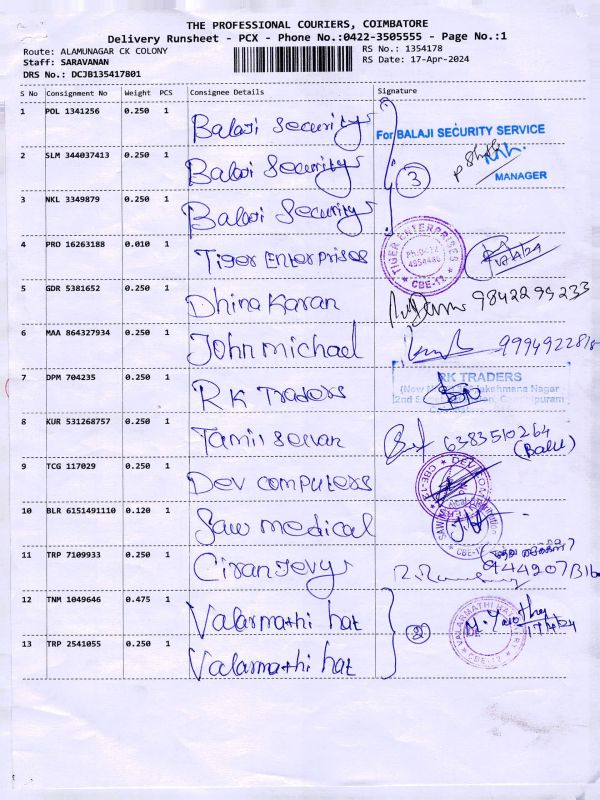 THE PROFESSIONAL COURIERS, COIMBATORE
Delivery Runsheet - PCX - Phone No.:0422-3505555 - Page No.:1
Route: ALAMUNAGAR CK COLONY
RS No.: 1354178
Staff: SARAVANAN
RS Date: 17-Apr-2024
DRS No.: DCJB135417801
S No Consignment No Weight PCS Consignee Details Signature
1 POL 1341256 0.250 1 Balaji Security
For BALAJI SECURITY SERVICE
2 SLM 344037413 0.250 1 Balaji Security
MANAGER
3
3 NKL 3349879 0.250 1 Balaji Security
4 PRO 16263188 0.010 1 Tiger Enterprises
TIGER ENTERPRISES
CBE-12
17/4/24
5 GDR 5381652 0.250 1 Dhina Karan
9842299233
6 MAA 864327934 0.250 1 John michael
7 DPM 704235 0.250 1 RK Traders
RK TRADERS
8 KUR 531268757 0.250 1 Tamil selvan
6383510264
(Balu)
9 TCG 117029 0.250 1 Dev computers
10 BLR 6151491110 0.120 1 Saw medical
CBE-12
11 TRP 7109933 0.250 1
12 TNM 1049646 0.475 1 Valarmathi hat
2
17/4/24
13 TRP 2541055 0.250 1 Valarmathi hat
CBE-12